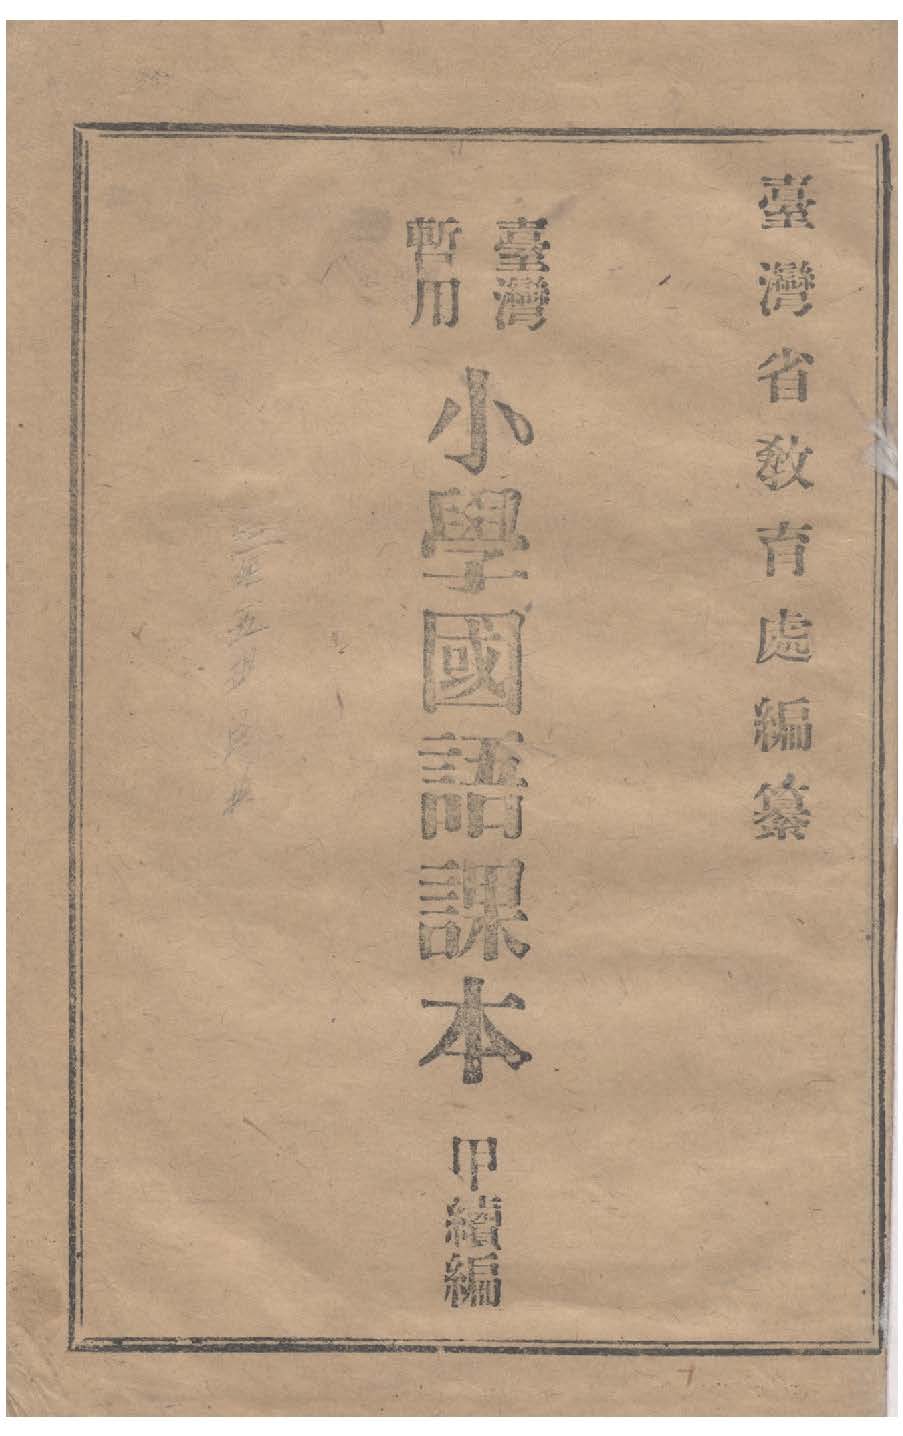 臺灣省教育處編纂
臺灣
暫用
小學國語課本
甲續編